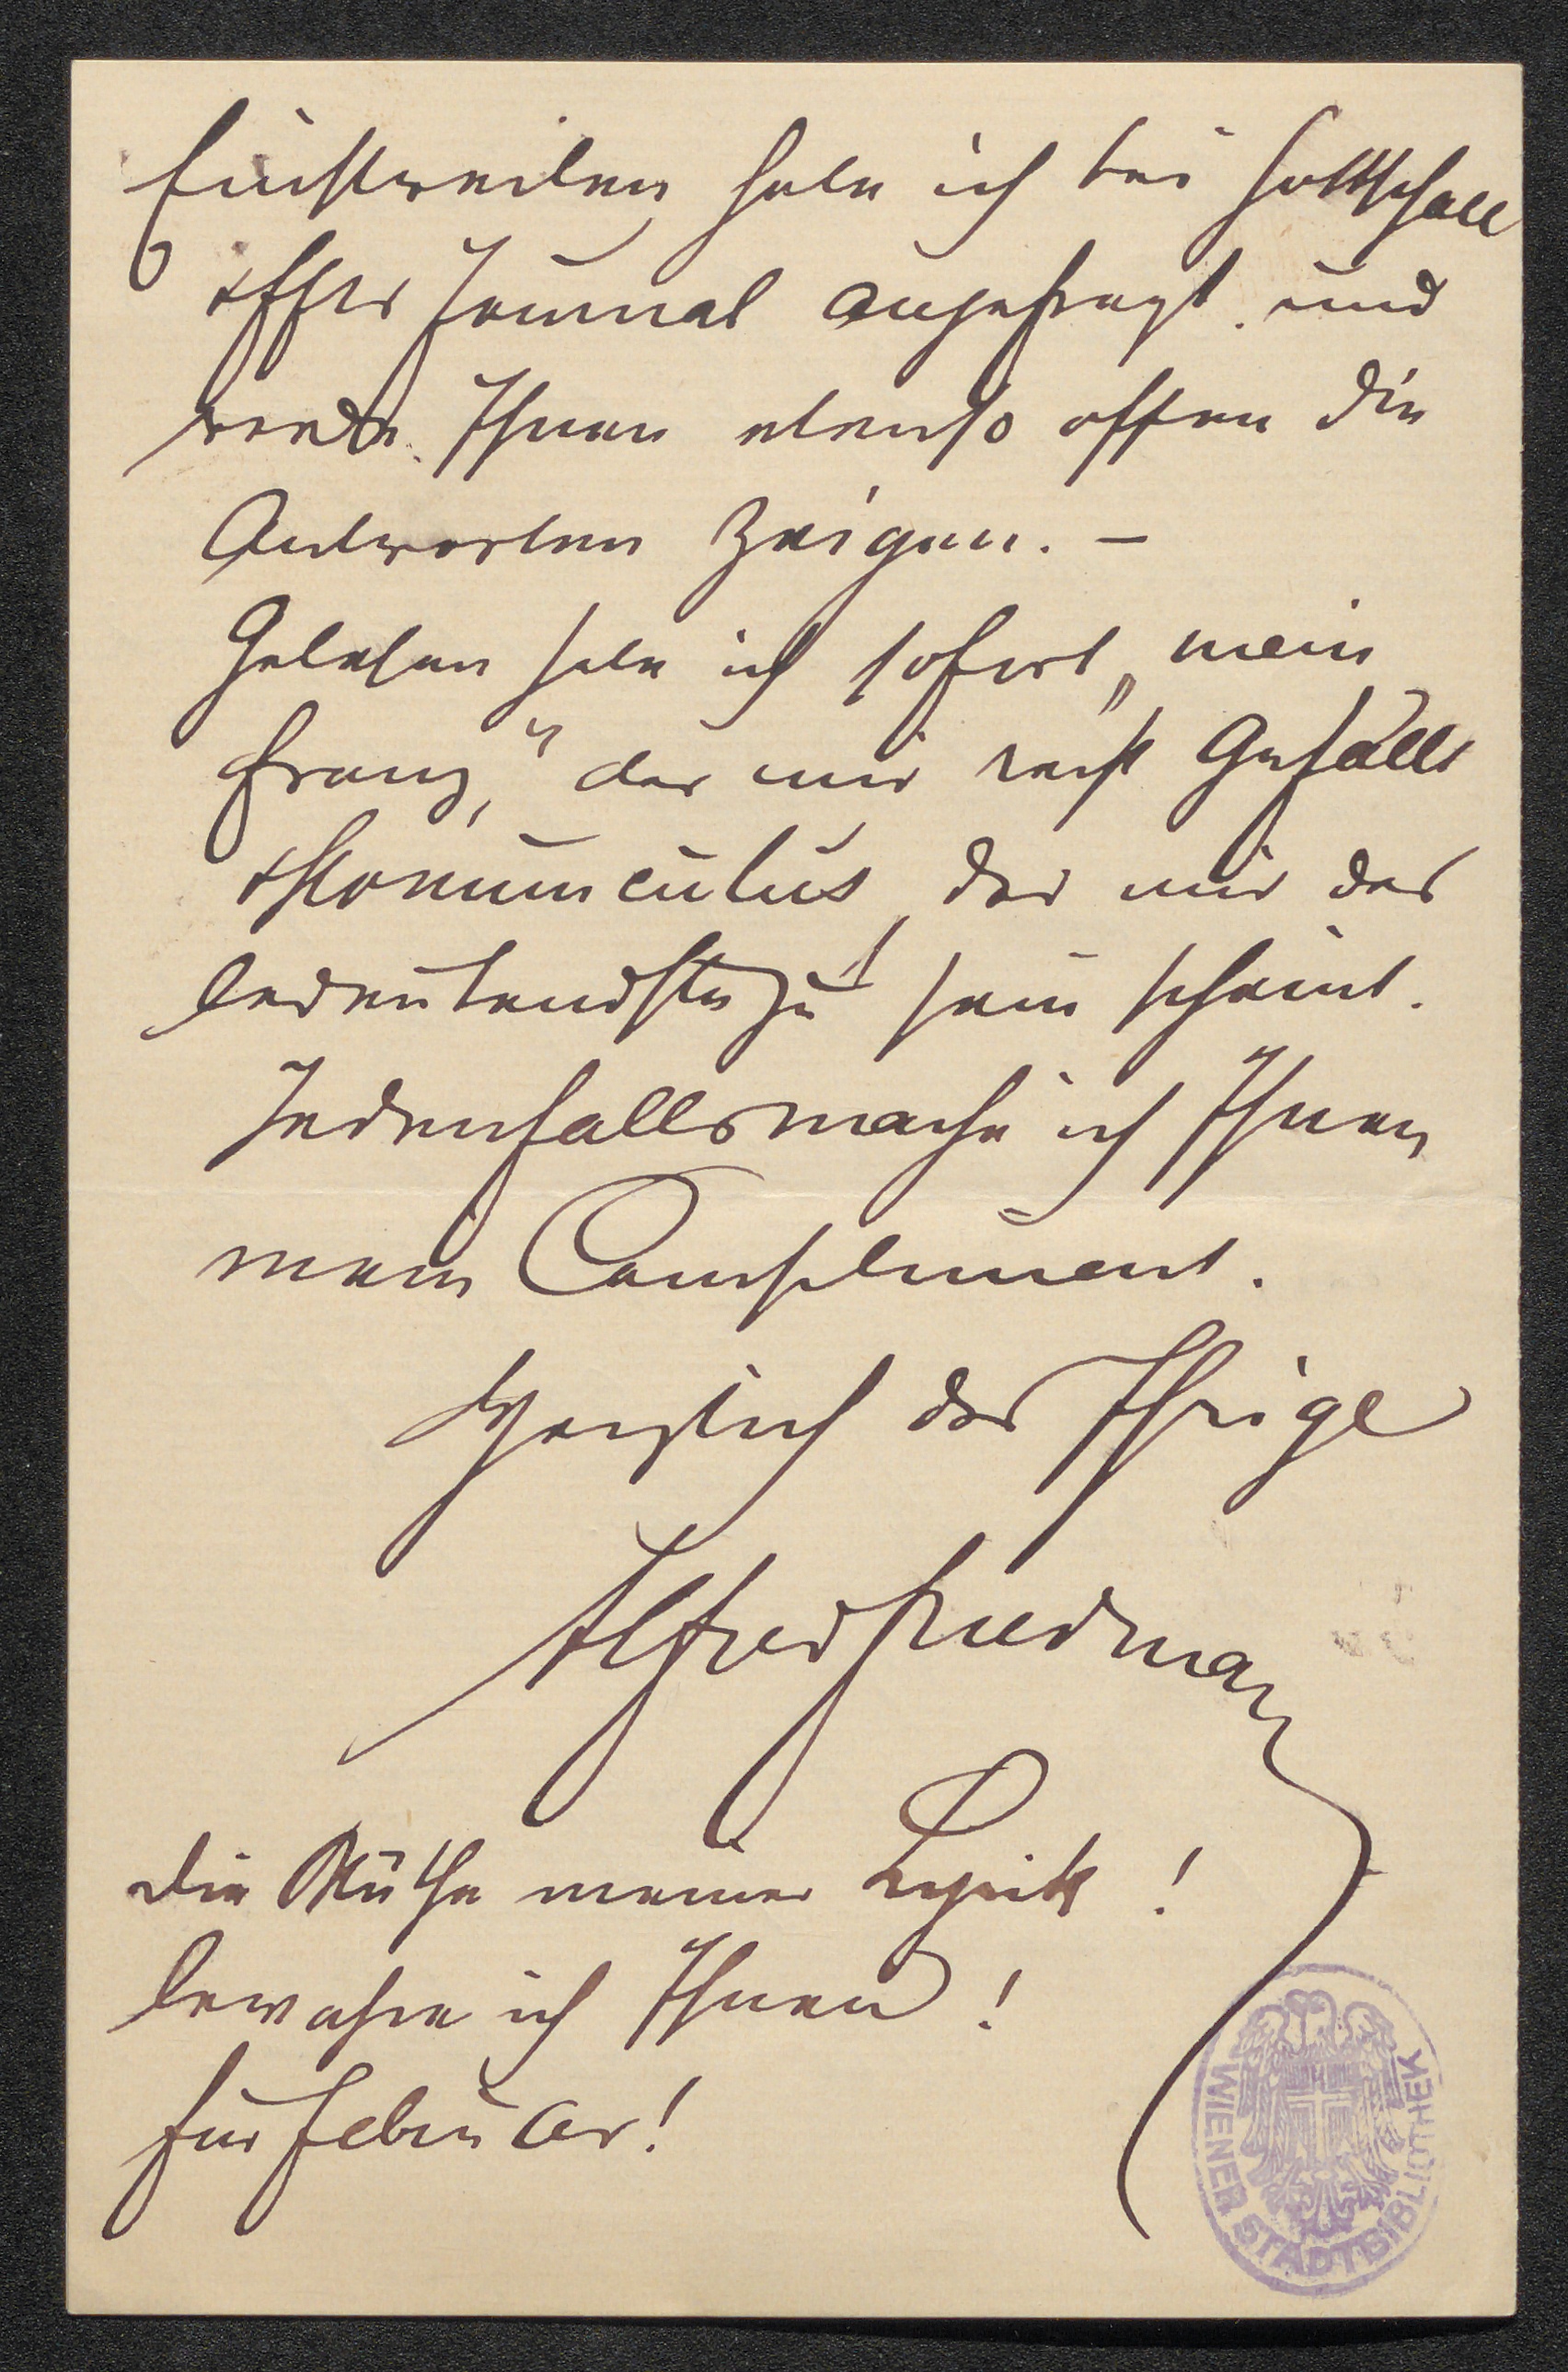 Einstweilen habe ich bei Gottschall
offen Journal angefragt und
werde Ihnen ebenso offen die
Antworten zeigen. –
Gelesen habe ich sofort „mein
Franz," der mir recht gefällt
Homunculus, der mir das
bedeutendste zu sein scheint.
Jedenfalls mache ich Ihnen
mein Compliment.
Herzlich der Ihrige
Alfred Friedmann
die Blüthe meiner Lyrik!
bewahre ich Ihnen!
für Februar!
WIENER STADTBIBLIOTHEK